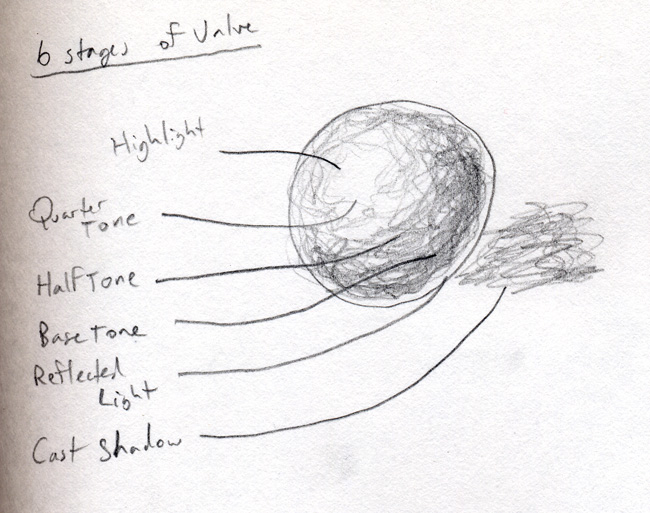 6 stages of Value
Highlight
Quarter
Tone
Half Tone
Base Tone
Reflected
Light
Cast Shadow